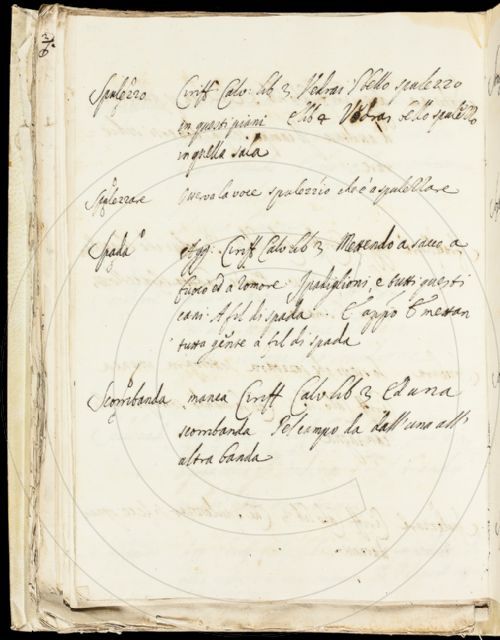 Spulezzo Ciriff Calv: lib 3. Vedrai s bello spulezzo
in questi piani. E lib 4 Vedrai bello spulezzo
in quella sala
Spulezzare Osserva la voce spulezzio che è a spulezzare
Spada Agg: Ciriff Calv lib 3 Mettendo a sacco a
fuoco ed a romore I padiglioni, e tutti questi
cani A fil di spada. E appo E mettan
tutta gente à fil di spada
Scombanda manca Ciriff Calv lib 3 Ed una
scombanda Pel campo da dall'una all'
altra banda